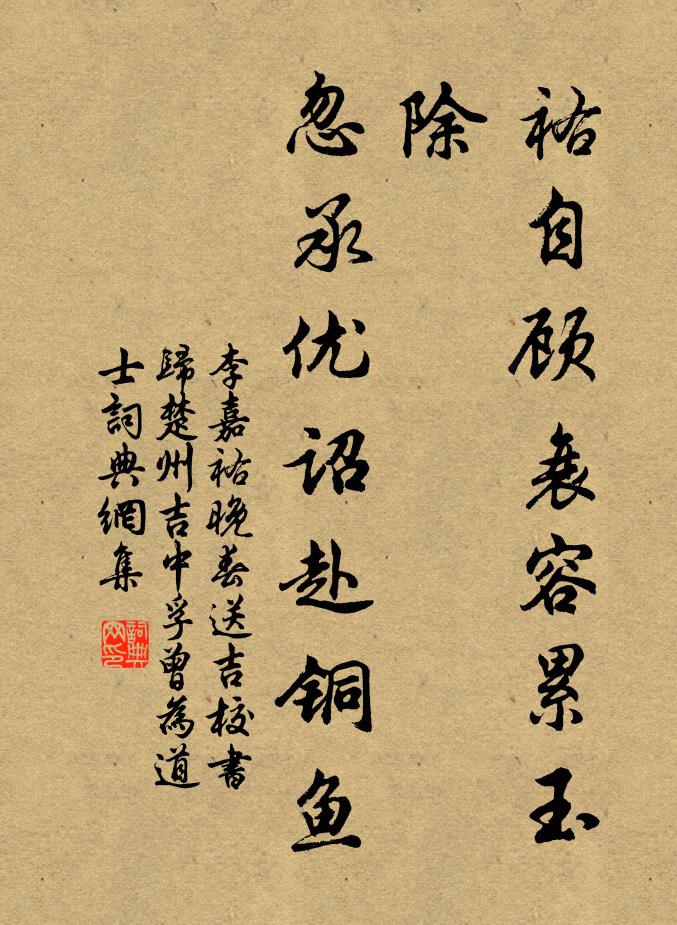 祐自顾衰容累玉
除
忽承优诏赴铜鱼
李嘉祐晚春送吉校書
歸楚州吉中孚曾為道
士詞典網集
詞典
网印